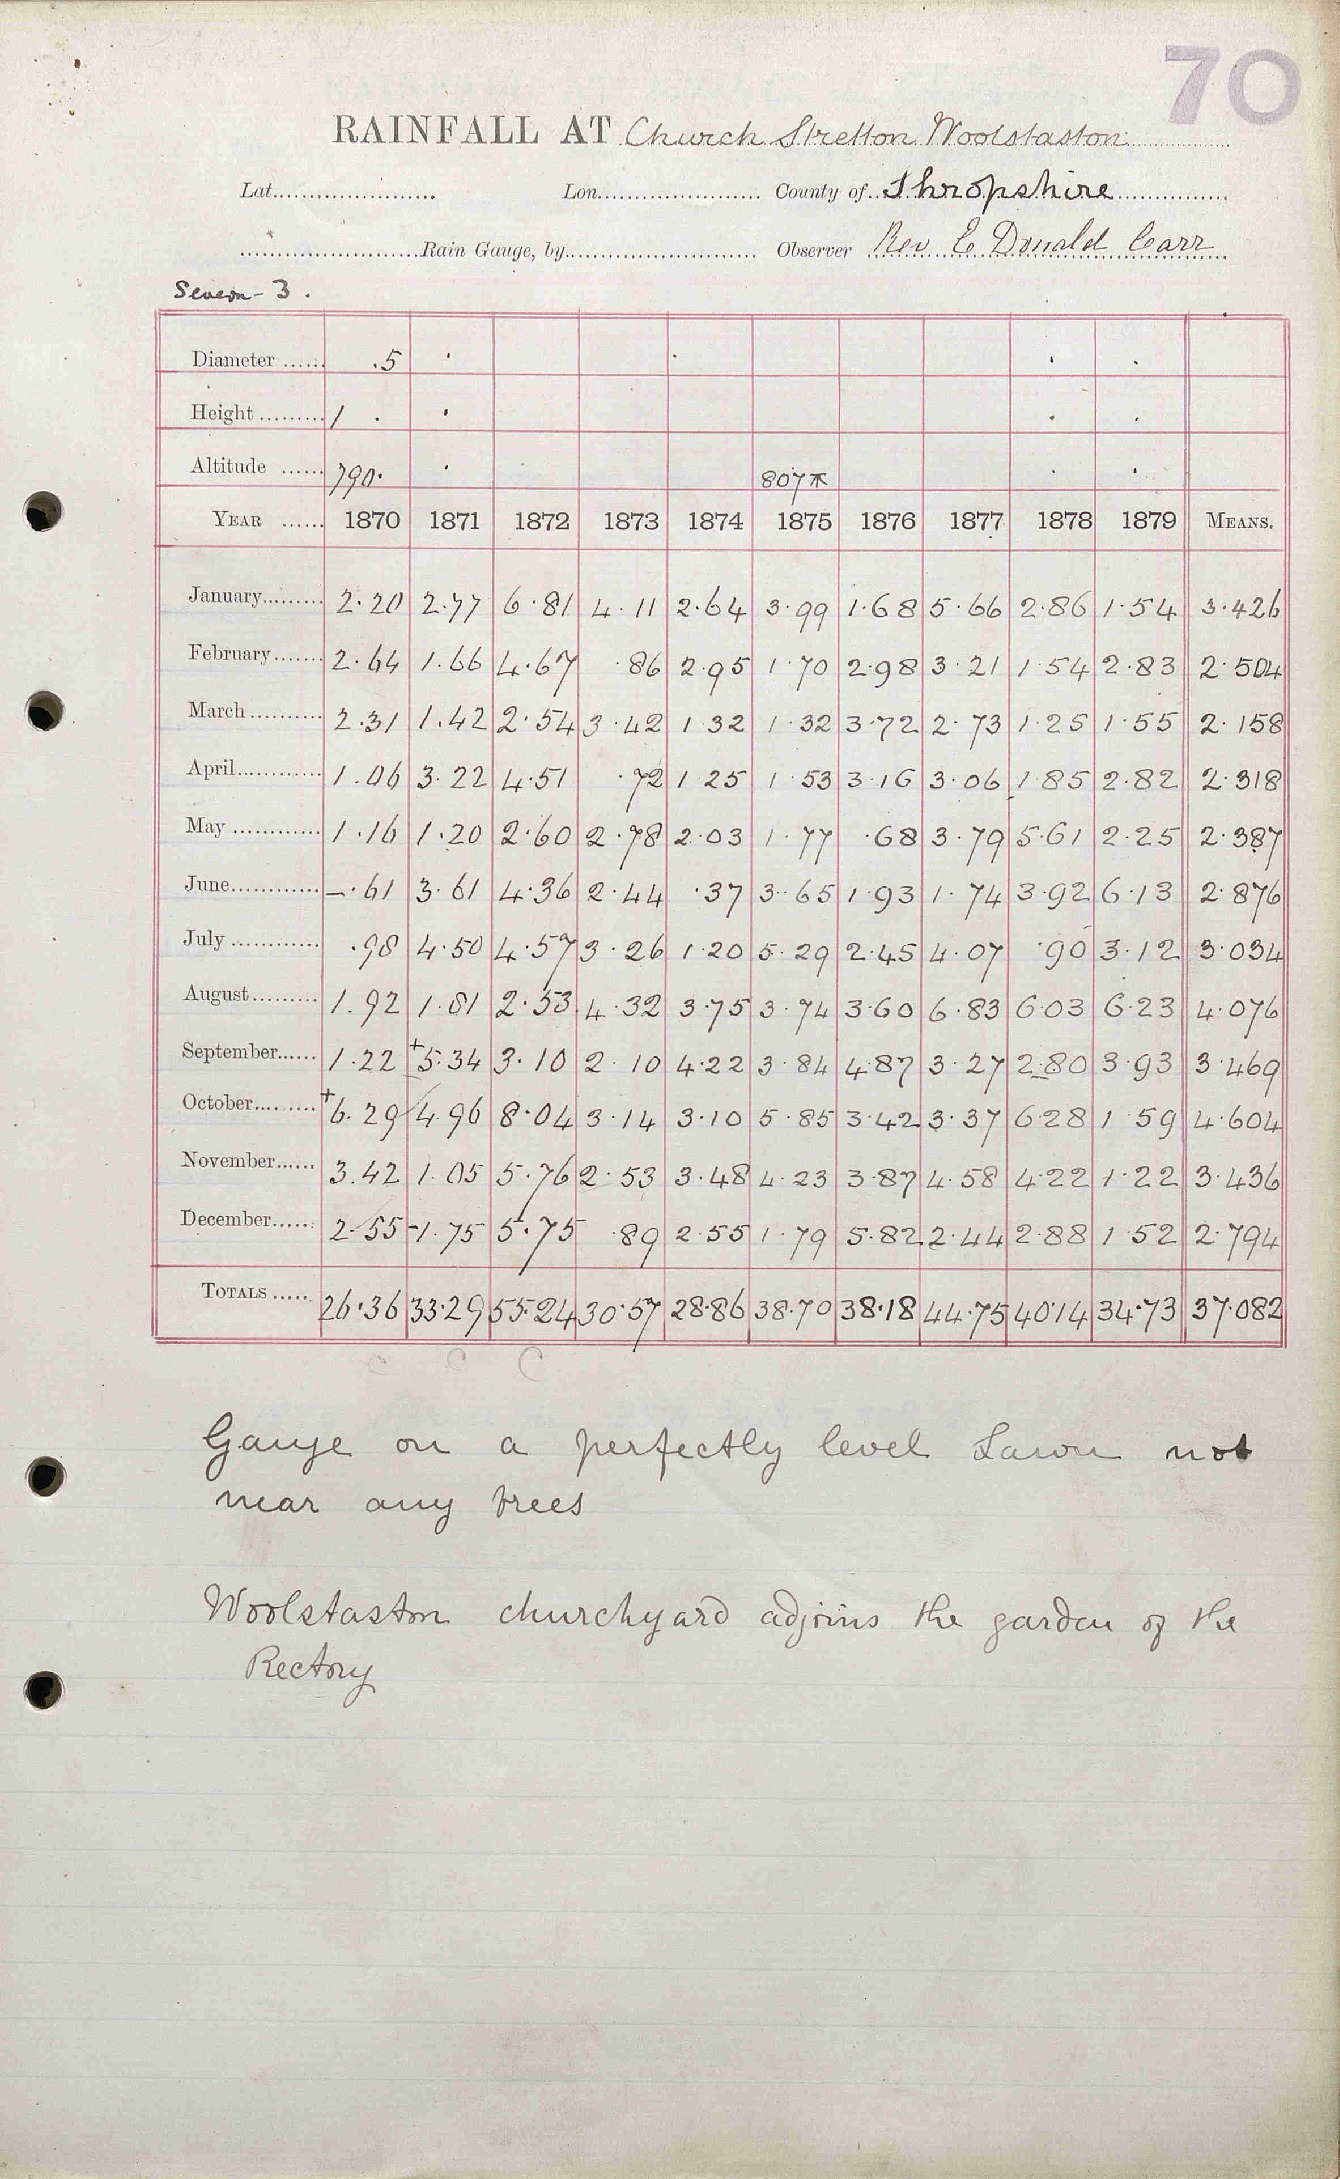 70
RAINFALL AT Church Stretton Woolstaston
Lat. Lon. County of Shropshire
Rain Gauge, by Observer Rev E Donald Carr
Severn - 3.
Diameter .5
Height 1
Altitude 790. 807
YEAR 1870 1871 1872 1873 1874 1875 1876 1877 1878 1879 MEANS.
January 2.20 2.77 6.81 4.11 2.64 3.99 1.68 5.66 2.86 1.54 3.426
February 2.64 1.66 4.67 .86 2.95 1.70 2.98 3.21 1.54 2.83 2.504
March 2.31 1.42 2.54 3.42 1.32 1.32 3.72 2.73 1.25 1.55 2.158
April 1.06 3.22 4.51 .72 1.25 1.53 3.16 3.06 1.85 2.82 2.318
May 1.16 1.20 2.60 2.78 2.03 1.77 .68 3.79 5.61 2.25 2.387
June –.61 3.61 4.36 2.44 .37 3.65 1.93 1.74 3.92 6.13 2.876
July .98 4.50 4.57 3.26 1.20 5.29 2.45 4.07 .90 3.12 3.034
August 1.92 1.81 2.53 4.32 3.75 3.74 3.60 6.83 6.03 6.23 4.076
September 1.22 +5.34 3.10 2.10 4.22 3.84 4.87 3.27 2.80 3.93 3.469
October +6.29 4.96 8.04 3.14 3.10 5.85 3.42 3.37 6.28 1.59 4.604
November 3.42 1.05 5.76 2.53 3.48 4.23 3.87 4.58 4.22 1.22 3.436
December 2.55 -1.75 5.75 .89 2.55 1.79 5.82 2.44 2.88 1.52 2.794
TOTALS 26.36 33.29 55.24 30.57 28.86 38.70 38.18 44.75 40.14 34.73 37.082
C C C
Gauge on a perfectly level Lawn not
near any trees
Woolstaston churchyard adjoins the garden of the
Rectory